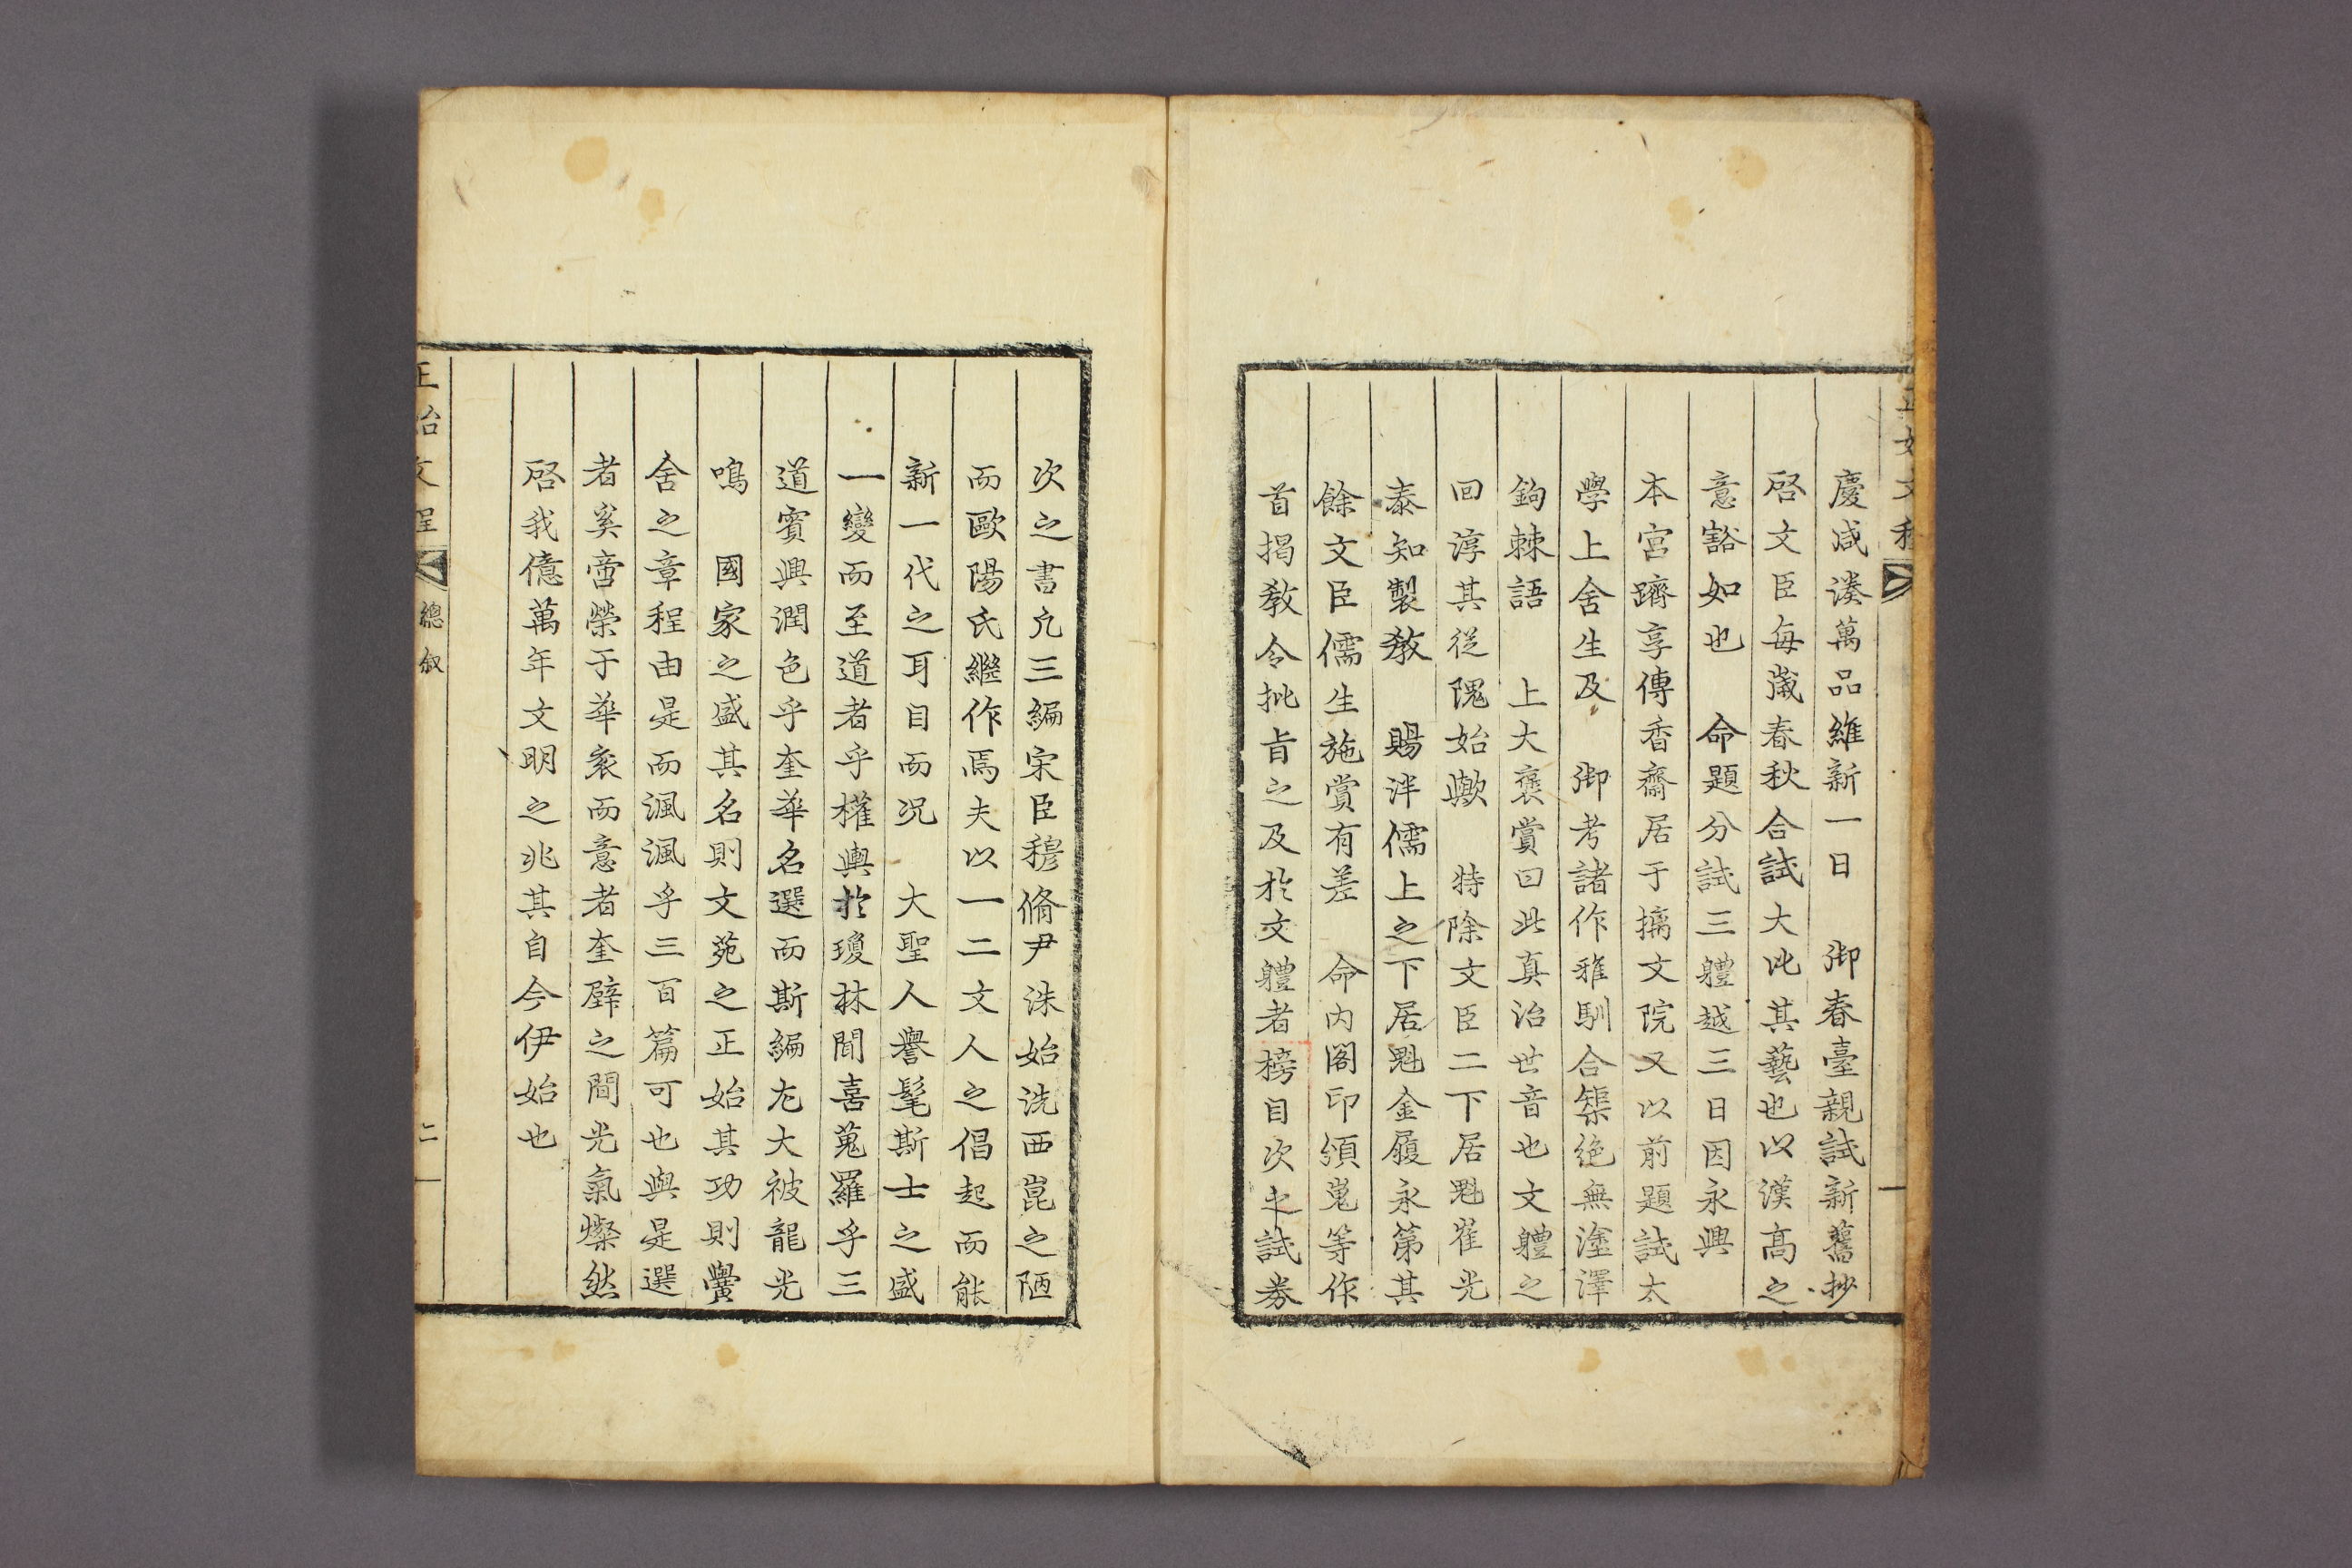 慶咸湊萬品維新一日　御春臺親試新舊抄
啓文臣每歲春秋合試大比其藝也以漢高之
意豁如也　命題分試三體越三日因永興
本宮躋享傳香齋居于摛文院又以前題試太
學上舍生及　御考諸作雅馴合槩絕無塗澤
鉤棘語　上大褒賞曰此真治世音也文體之
回淳其從隗始歟　特除文臣二下居魁崔光
泰知製敎　賜泮儒上之下居魁金履永第其
餘文臣儒生施賞有差　命內閣印頒嵬等作
首揭敎令批旨之及於文體者榜目次之試券
次之書凡三編宋臣穆脩尹洙始洗西崑之陋
而歐陽氏繼作焉夫以一二文人之倡起而能
新一代之耳目而况　大聖人譽髦斯士之盛
一變而至道者乎權輿於瓊林聞喜蒐羅乎三
道賓興潤色乎奎華名選而斯編尤大被龍光
鳴　國家之盛其名則文苑之正始其功則黌
舍之章程由是而渢渢乎三百篇可也與是選
者奚啻榮于華衮而意者奎壁之間光氣燦然
啓我億萬年文明之兆其自今伊始也
正始文程　總叙　二